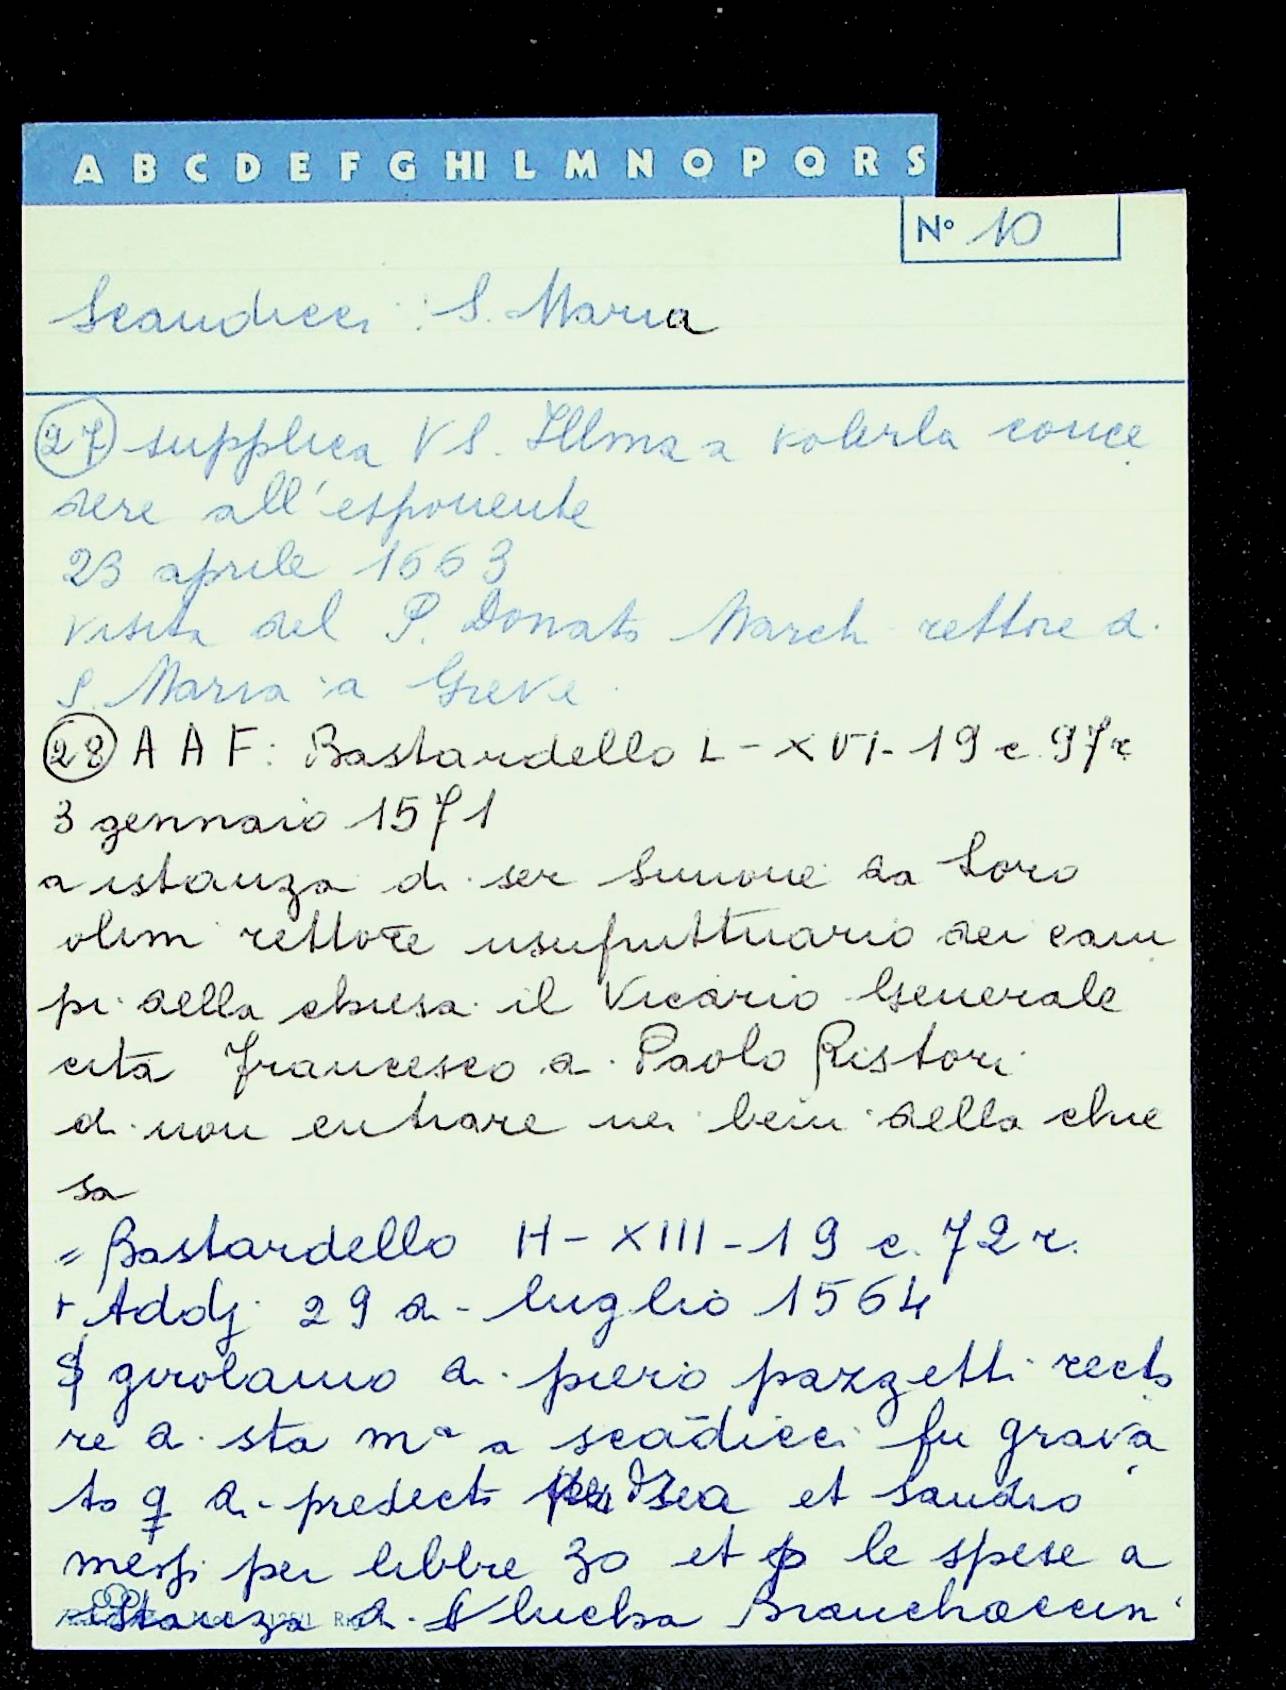 A B C D E F G HI L M N O P Q R S
N° 10
Scandicci: S. Maria
27 supplica VS. Illma a volerla conce
dere all'esponente
23 aprile 1663
visita del P. Donato March rettore di
S. Maria a Greve
28 A A F: Bastardello L - XVI - 19 c. 97r
3 gennaio 1571
a istanza di ser Simone da Loro
olim rettore usufruttuario dei cam
pi della chiesa il Vicario Generale
cita Francesco di Paolo Ristori
di non entrare nei beni della chie
sa
= Bastardello H - XIII - 19 c. 72 r.
+ Addj 29 di luglio 1564
S girolamo di piero pazzetti recto
re di sta mª a scādicci fu grava
to q di predecto et Sandro
messi per libbre 30 et p le spese a
istanza di S lucha Branchaccin